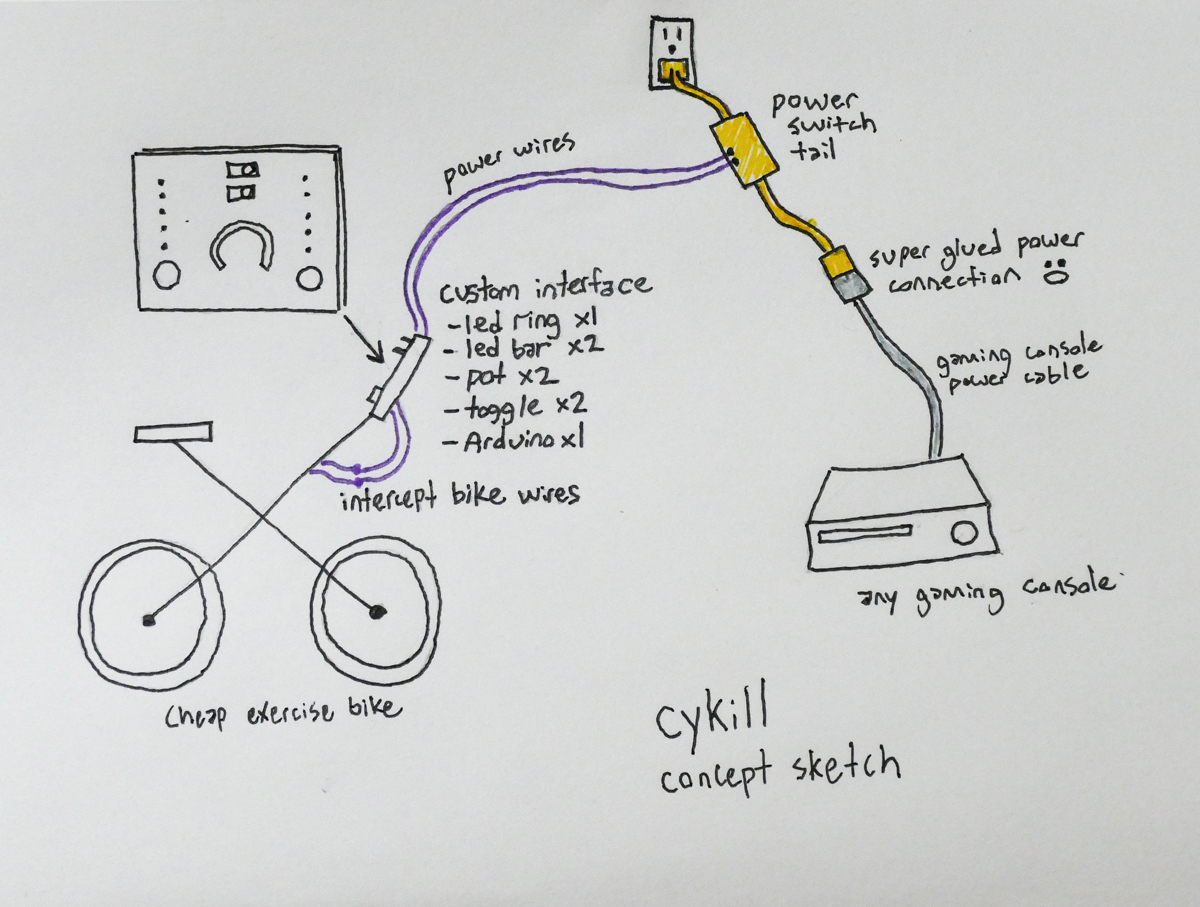 power
switch
tail
power wires
super glued power
connection
custom interface
- led ring x1
- led bar x2
- pot x2
- toggle x2
- Arduino x1
gaming console
power cable
intercept bike wires
any gaming console
cheap exercise bike
cykill
concept sketch